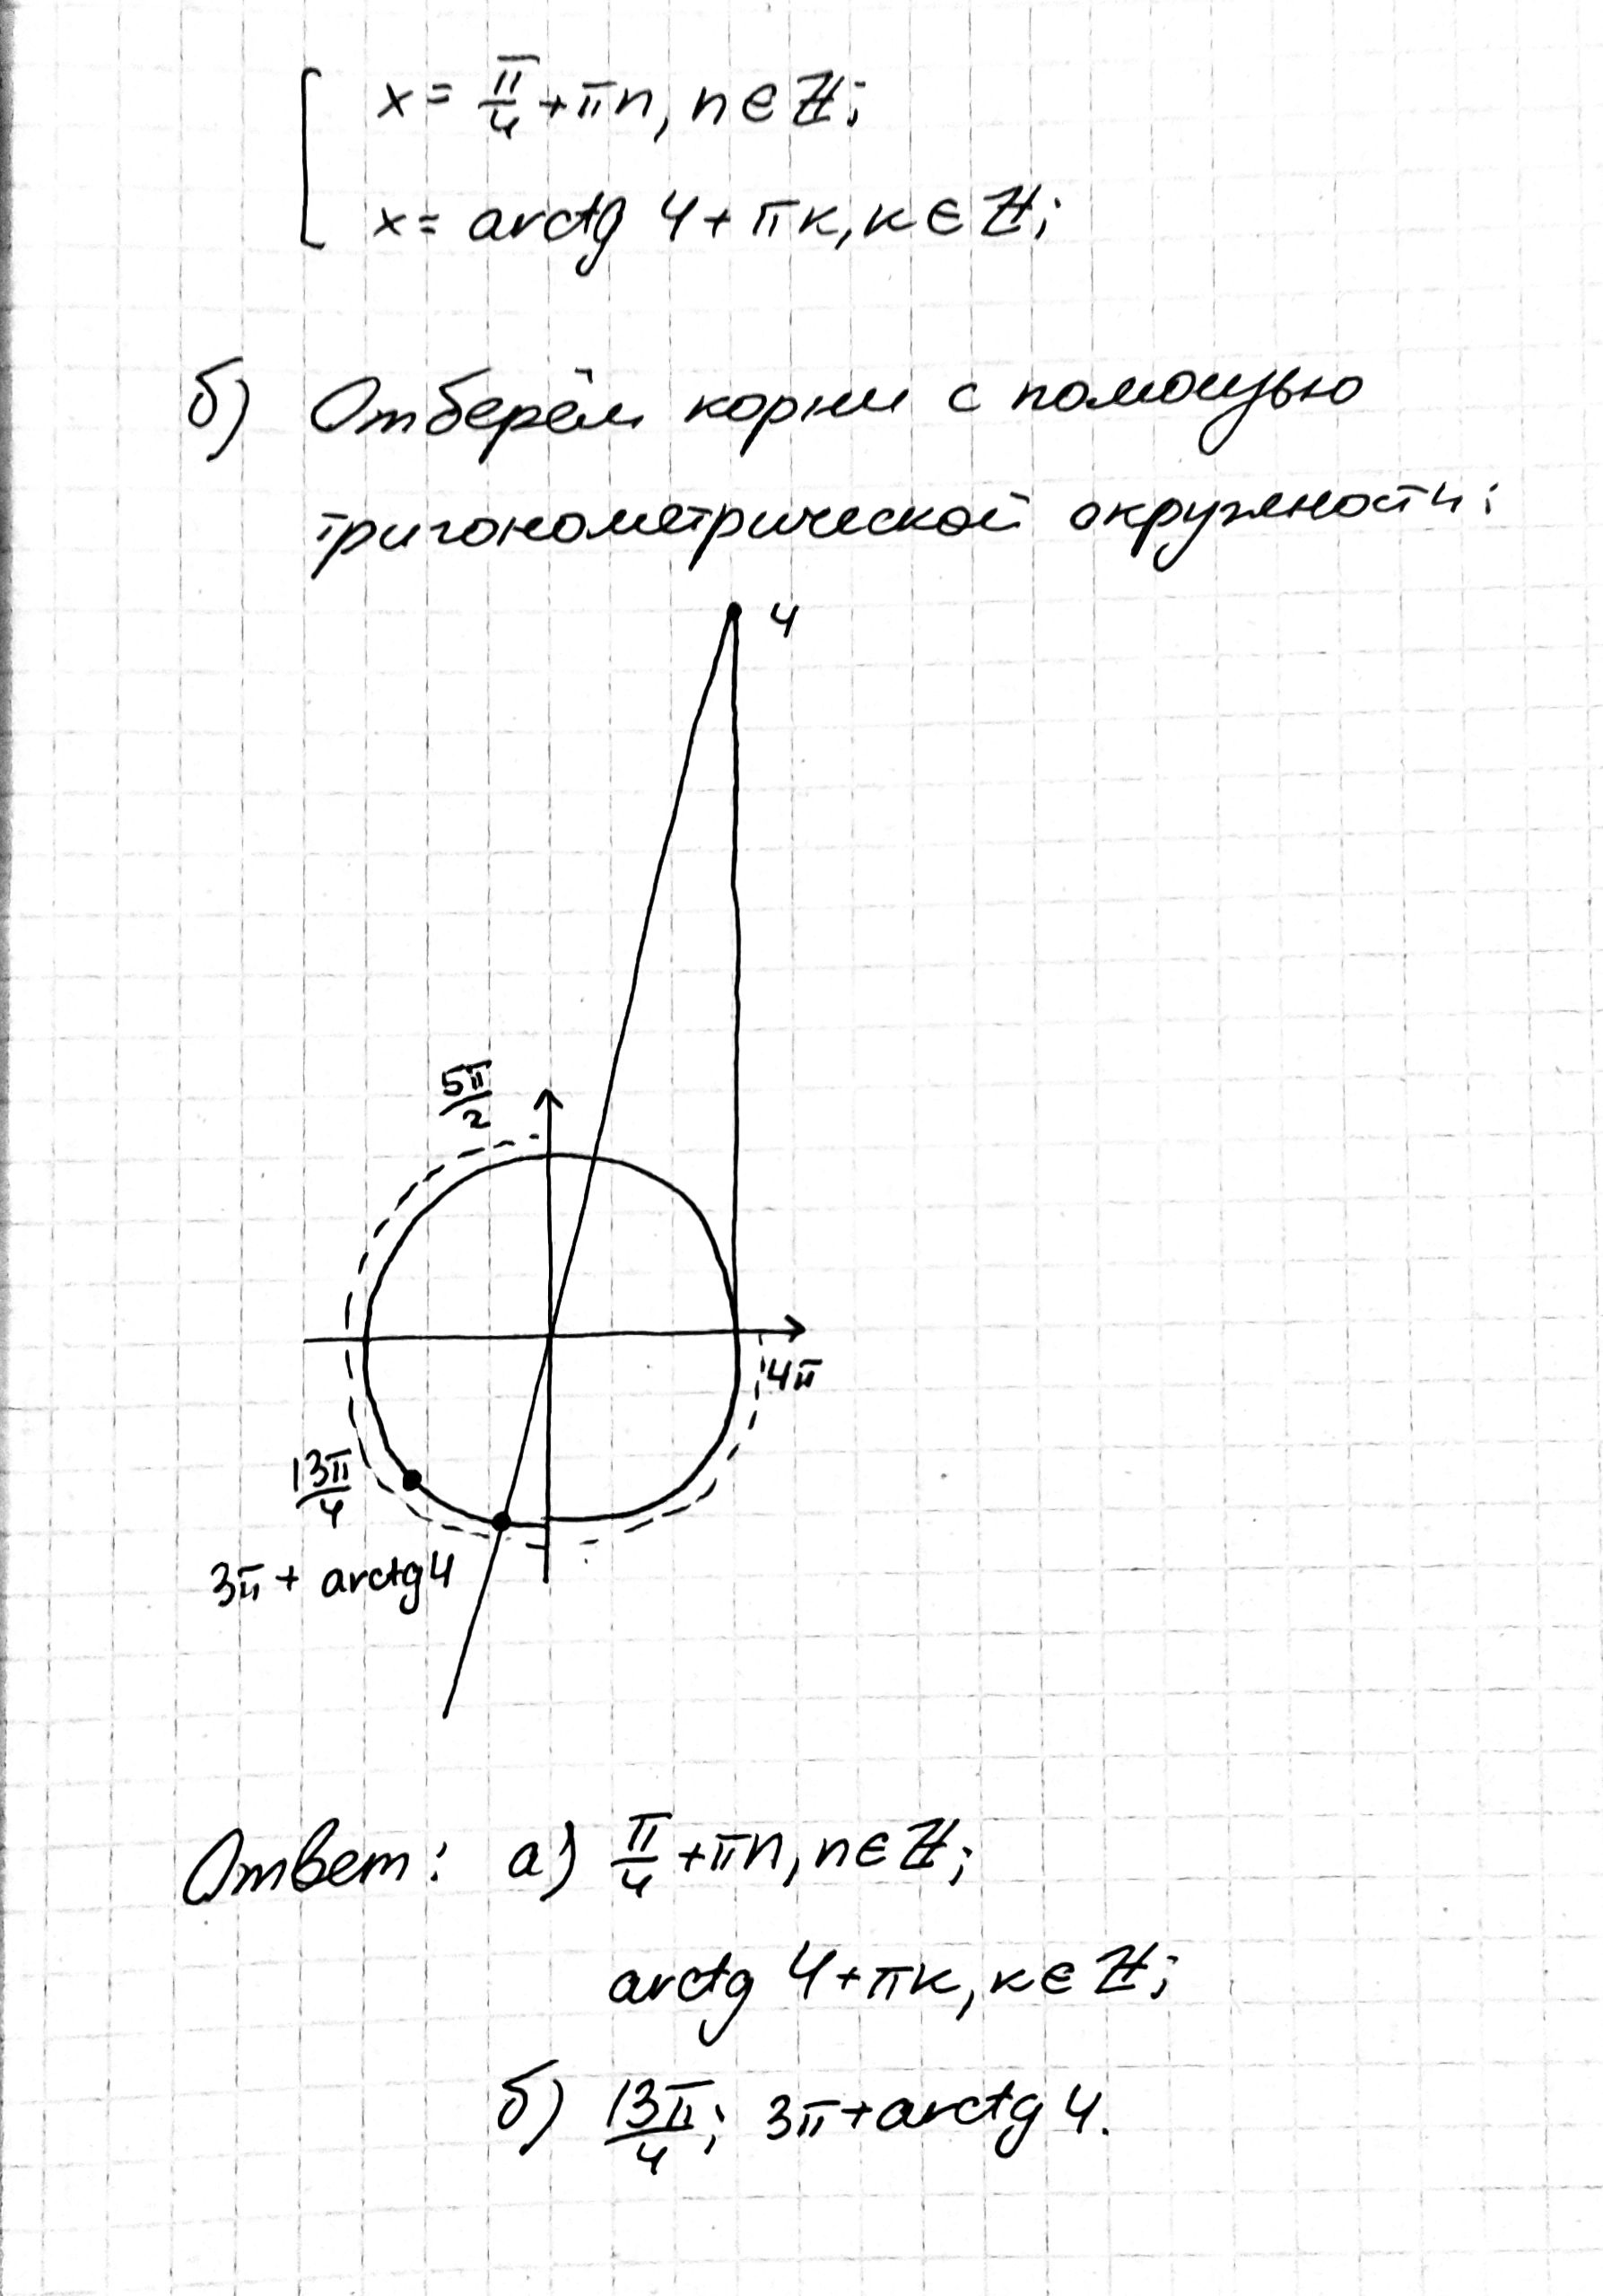 x = π/4 + πn, n ∈ ℤ;
x = arctg 4 + πк, к ∈ ℤ;
б) Отберём корни с помощью
тригонометрической окружности:
4
5π/2
4π
13π/4
3π + arctg 4
Ответ: а) π/4 + πn, n ∈ ℤ;
arctg 4 + πк, к ∈ ℤ;
б) 13π/4; 3π + arctg 4.